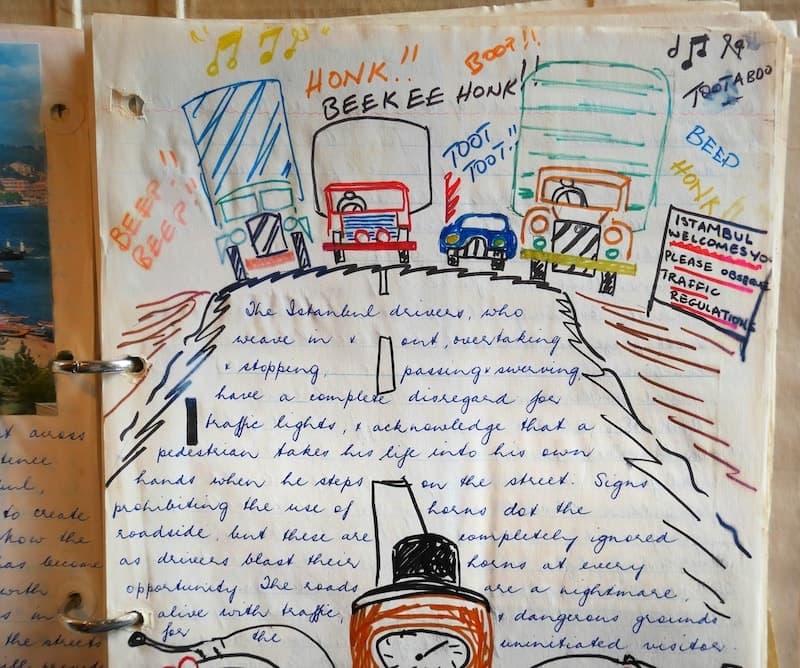 HONK!!
BOOP!!
BEEKEE HONK!!
TOOTABOO
TOOT
TOOT!!
BEEP
BEEP!!
BEEP!!
HONK!!
ISTAMBUL
WELCOMES YO
PLEASE OBSERVE
TRAFFIC
REGULATIONS
The Istanbul drivers, who
weave in & out, overtaking
& stopping, passing & swerving,
have a complete disregard for
traffic lights, & acknowledge that a
pedestrian takes his life into his own
hands when he steps on the street. Signs
prohibiting the use of horns dot the
roadside, but these are completely ignored
as drivers blast their horns at every
opportunity. The roads are a nightmare,
alive with traffic, & dangerous grounds
for the uninitiated visitor.
across
to create
how the
has become
with
s in
the streets